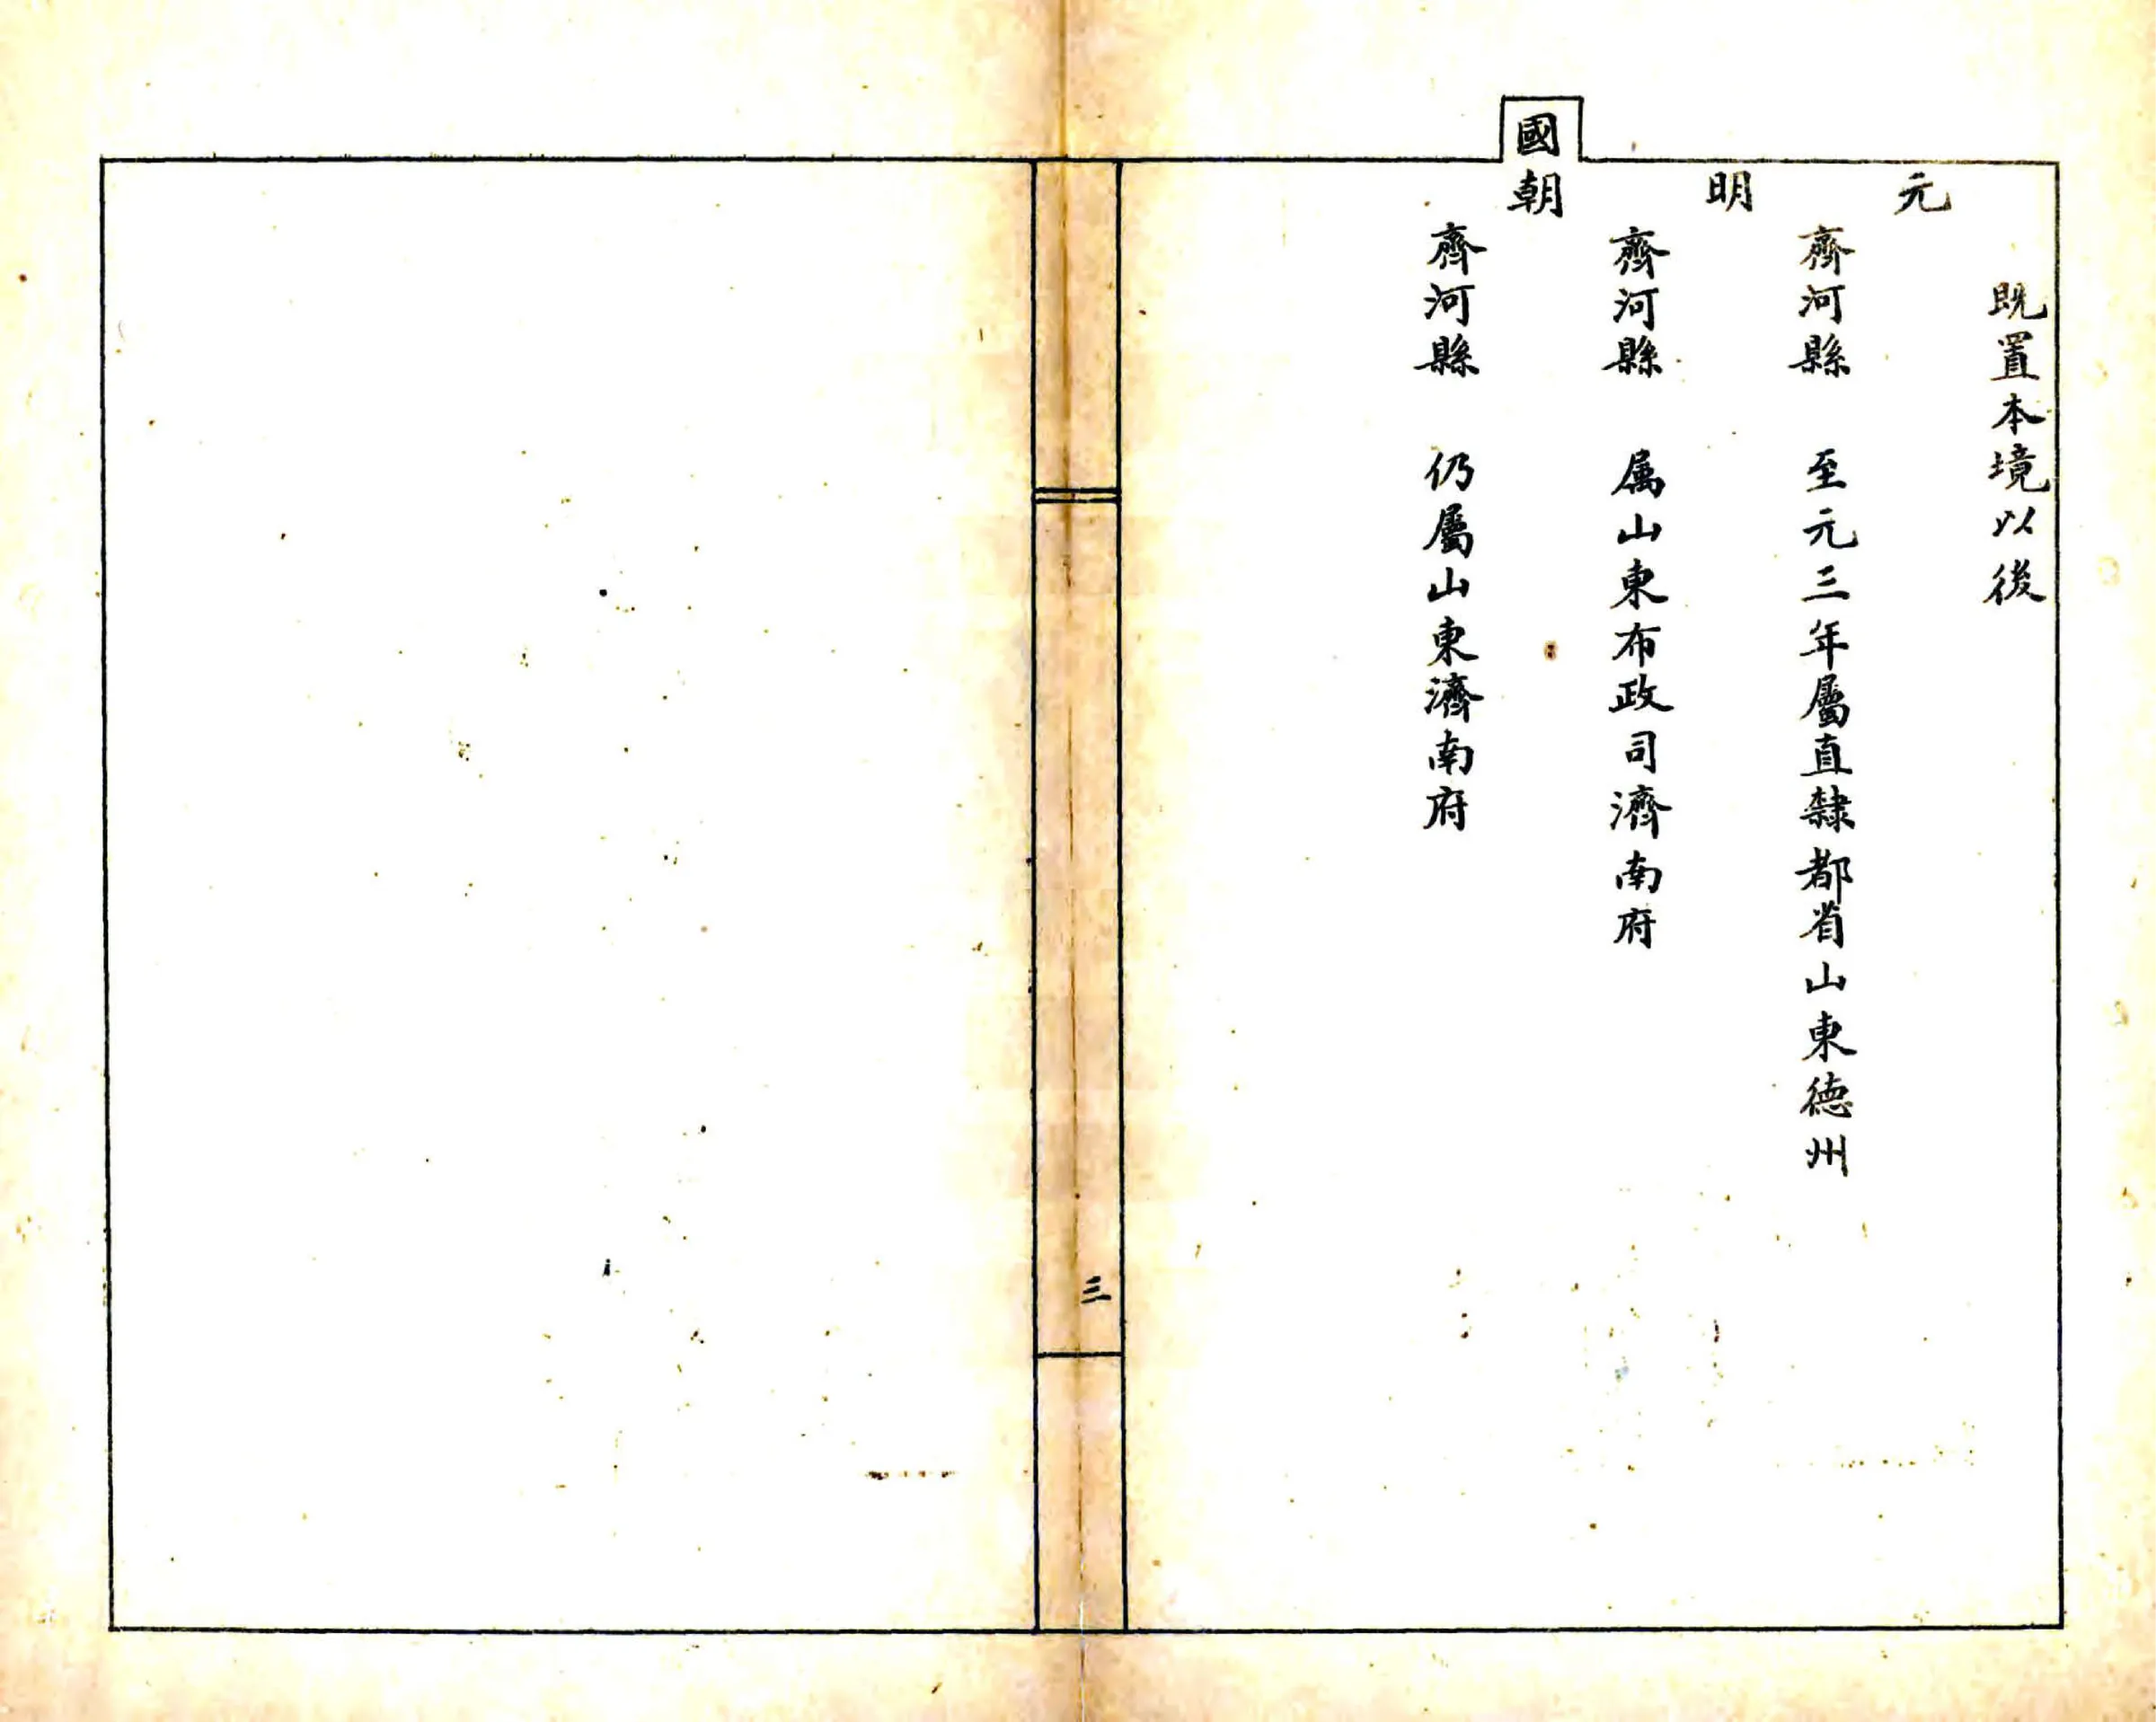 既置本境以後
元
齊河縣　至元三年屬直隸都省山東德州
明
齊河縣　属山東布政司濟南府
國朝
齊河縣　仍屬山東濟南府
三